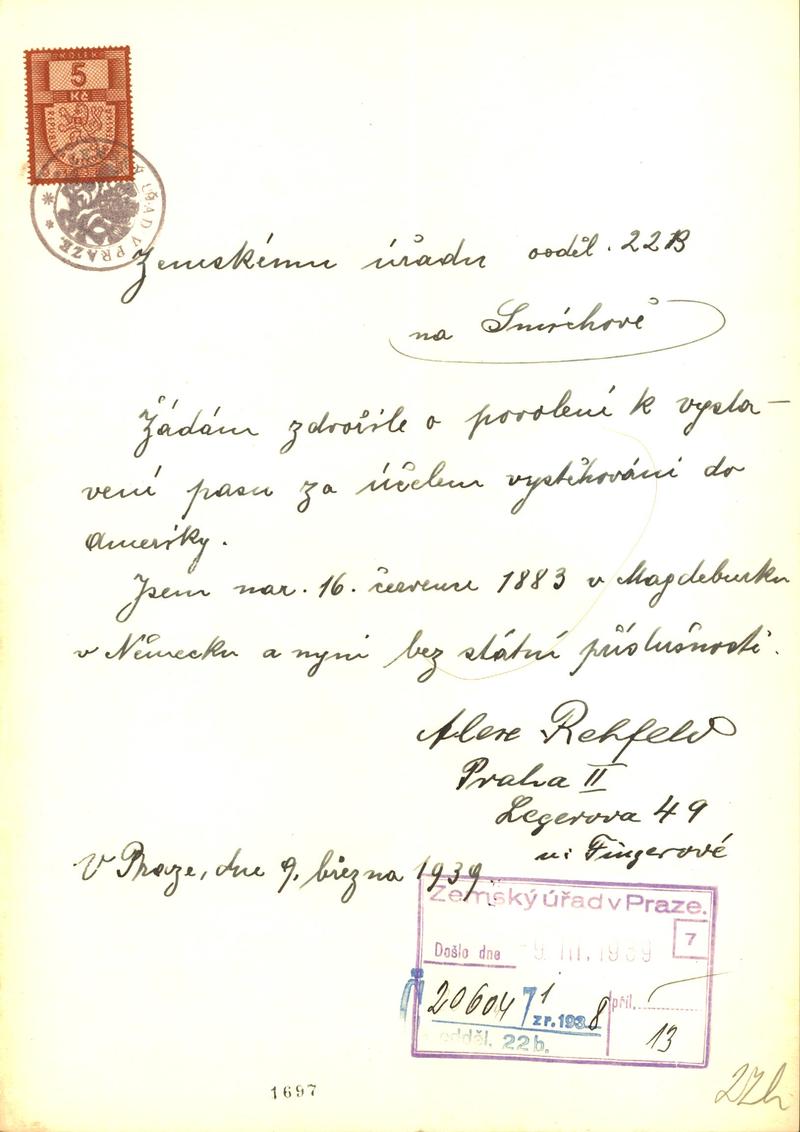 KOLEK
5
Kč
ÚŘAD V PRAZE.
Zemskému úřadu odděl. 22B
na Smíchově
Žádám zdvořile o povolení k vysta-
vení pasu za účelem vystěhování do
Ameriky.
Jsem nar. 16. července 1883 v Magdeburku
v Německu a nyní bez státní příslušnosti.
Alex Rehfeld
Praha II
Legerova 49
u: Fingerové
V Praze, dne 9. března 1939.
Zemský úřad v Praze.
7
Došlo dne -9. III. 1939
20604 7 1
zr. 1938
příl.
odděl. 22b.
13
1697
22b